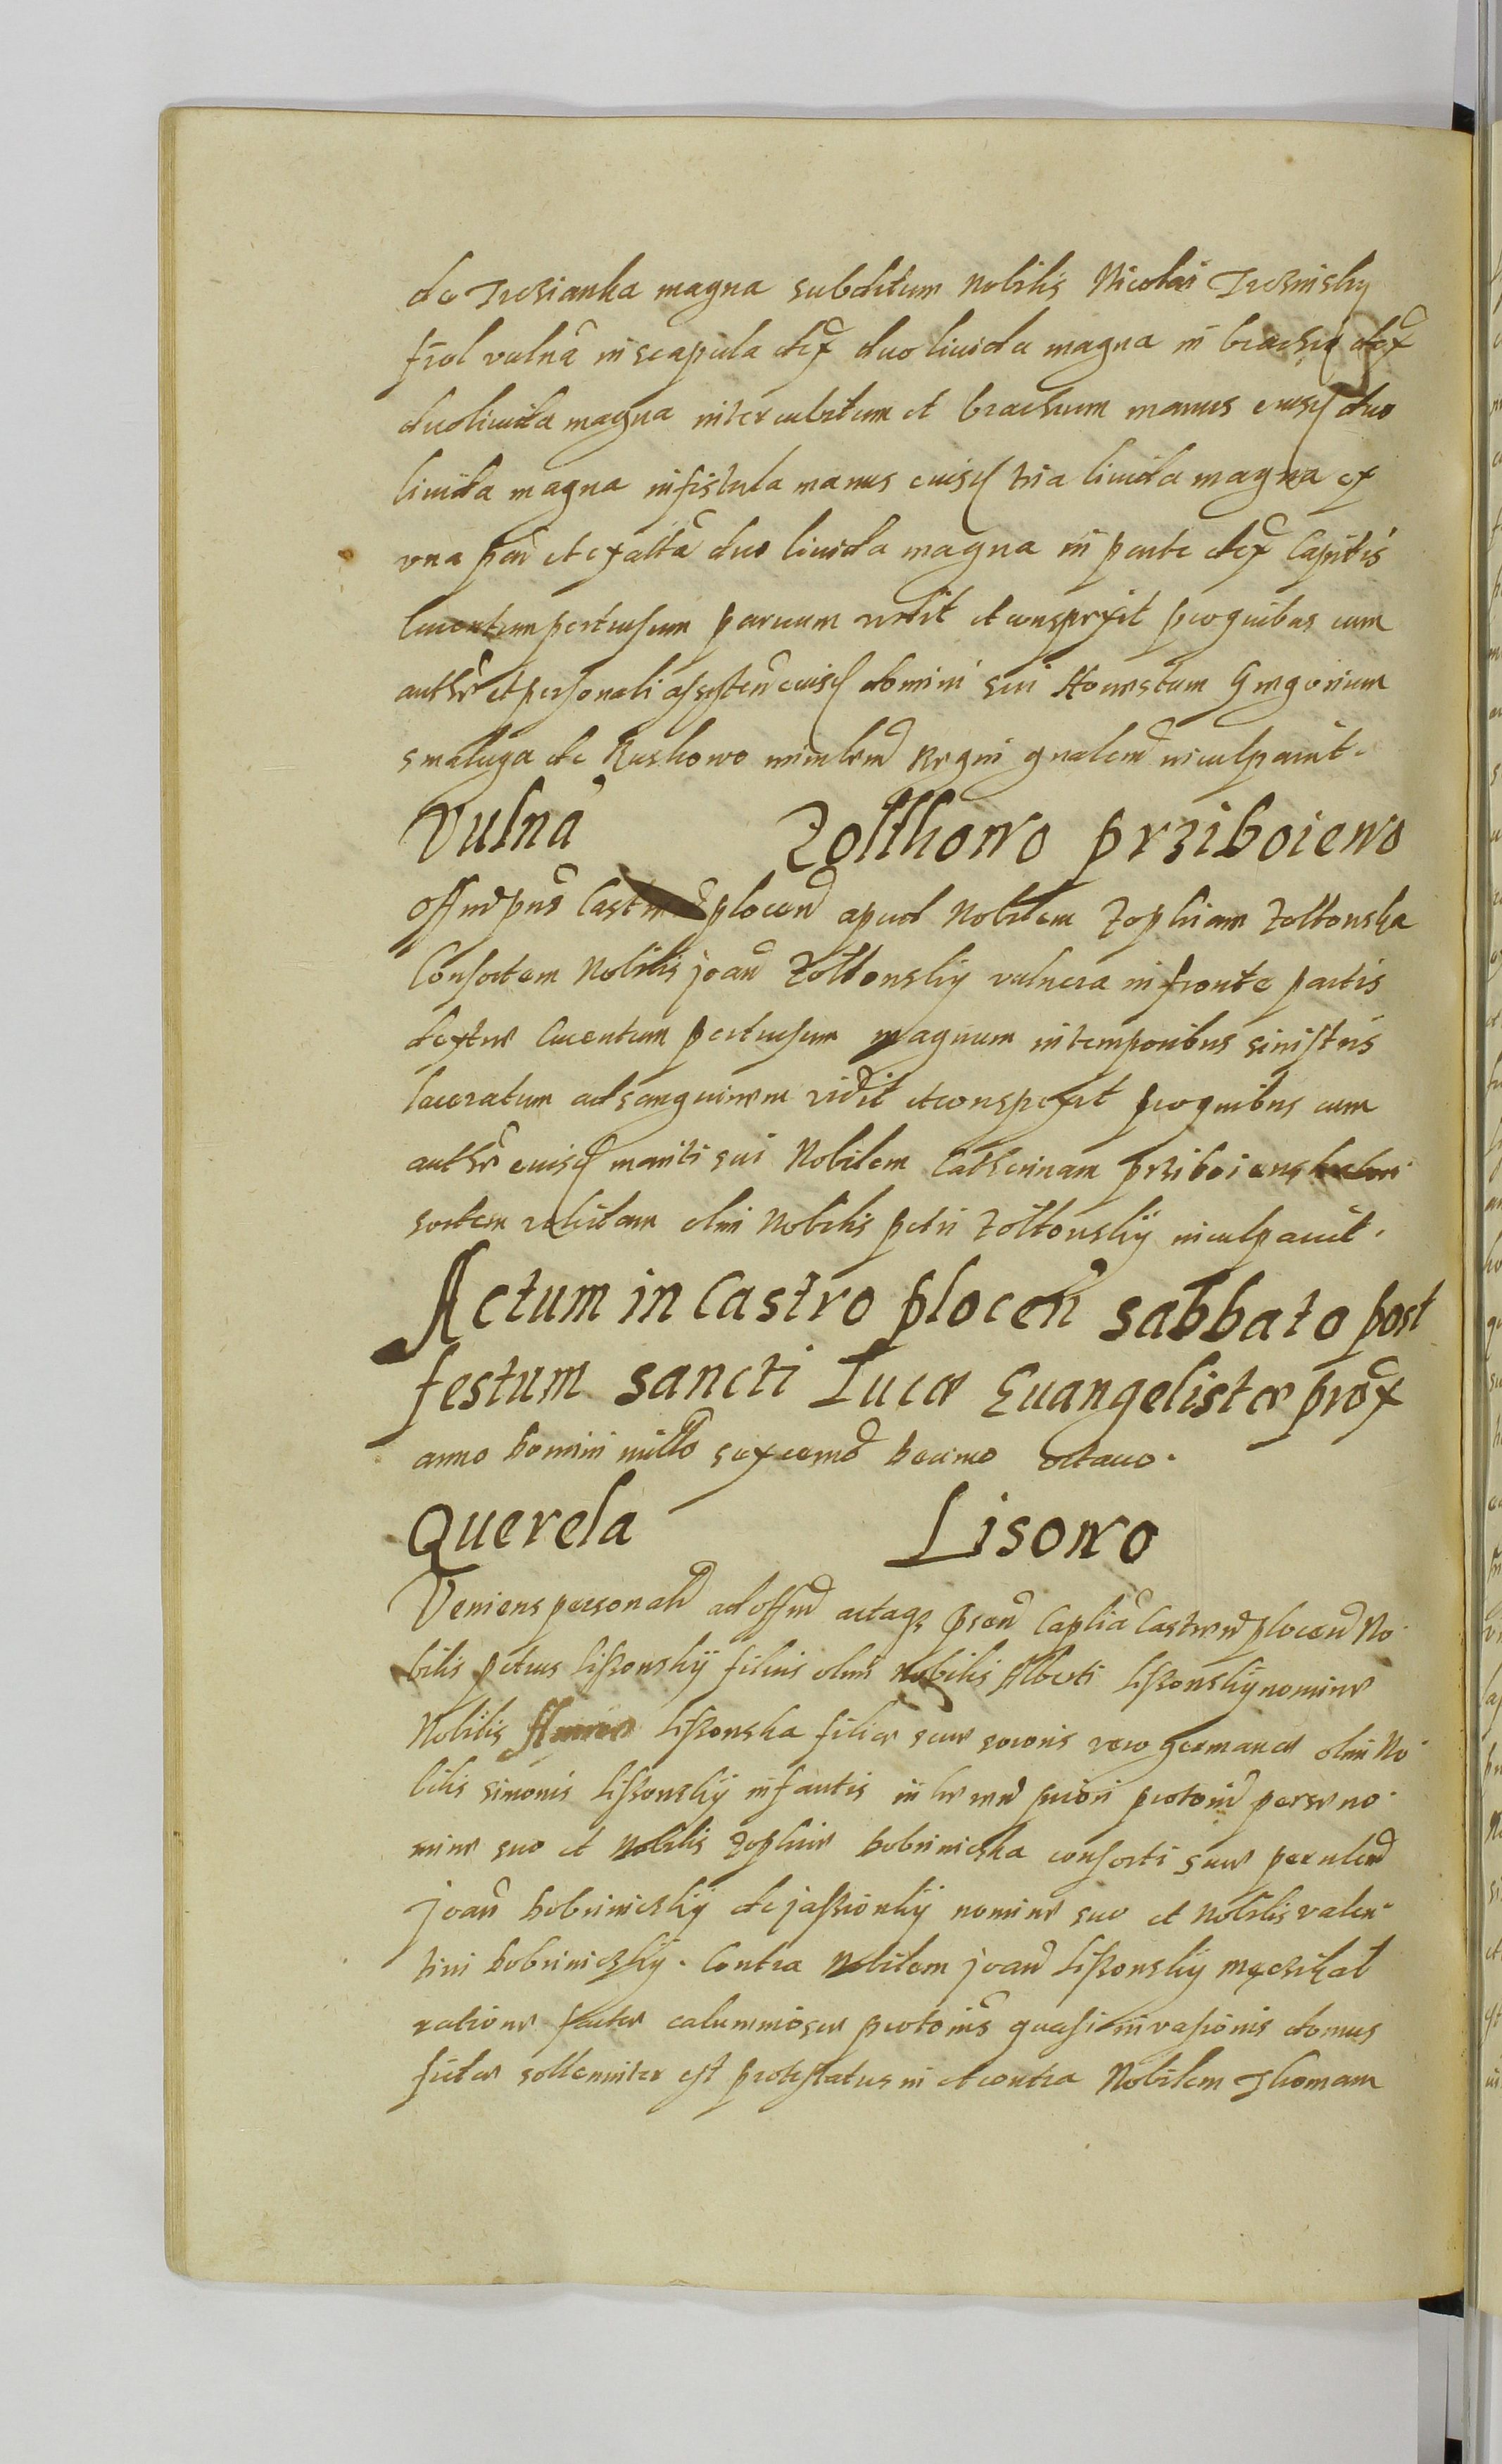 de Trzianka magna subditum Nobilis Nicolai
vulna in scapula dex duo liuida magna in brachio dex
duo liuida magna inter cubitum et brachium manus eiusd duo
liuida magna in fistula manus eiusd tria liuida magna ex
vna par et ex alta duo liuida magna in parte dex Capitis
pertusum paruum vidit et conspexit pro quibus cum
auth et personali assisten eiusd domini sui Honestum Gregorium
smaluga de Ruskowo Regni gnalem inculpauit.
Vulna Zolthowo prziboiewo
Offm pns Castren plocen apud Nobilem Zophiam Zoltowska
Consortem Nobilis joan Zoltowskÿ vulnera in fronte partis
dextre pertusum magnum in temporibus sinistris
laceratum ad sanguinem vidit et conspexit pro quibus cum
auth eiusd mariti sui Nobilem Catherinam prziboiewska
sortem relictam olim Nobilis petri Zoltowskÿ inculpauit.
Actum in Castro plocen sabbato post
festum sancti Lucæ Euangelistæ prox
anno Domini millo sexcemo Decimo octauo.
Querela Lisowo
Veniens personal ad offm actaq psen Caplia Castren plocen No
bilis petrus Lissowskÿ filius olim Nobilis Alberti Lissowskÿ nomine
Nobilis Lissowska filiæ suæ sororis vero germanæ olim No
bilis simonis Lissowskÿ infantis in priori
mine suo et Nobilis Zophiæ Dobrinieska consortis suæ per
Joan Dobriniecskÿ de jassionkÿ nomine suo et Nobilis valen
tini Dobriniecskÿ. Contra Nobilem joan Lissowskÿ
ratione factæ calumniosæ quasi inuasionis domus
fictæ sollemniter est protestatus in et contra Nobilem Thomam